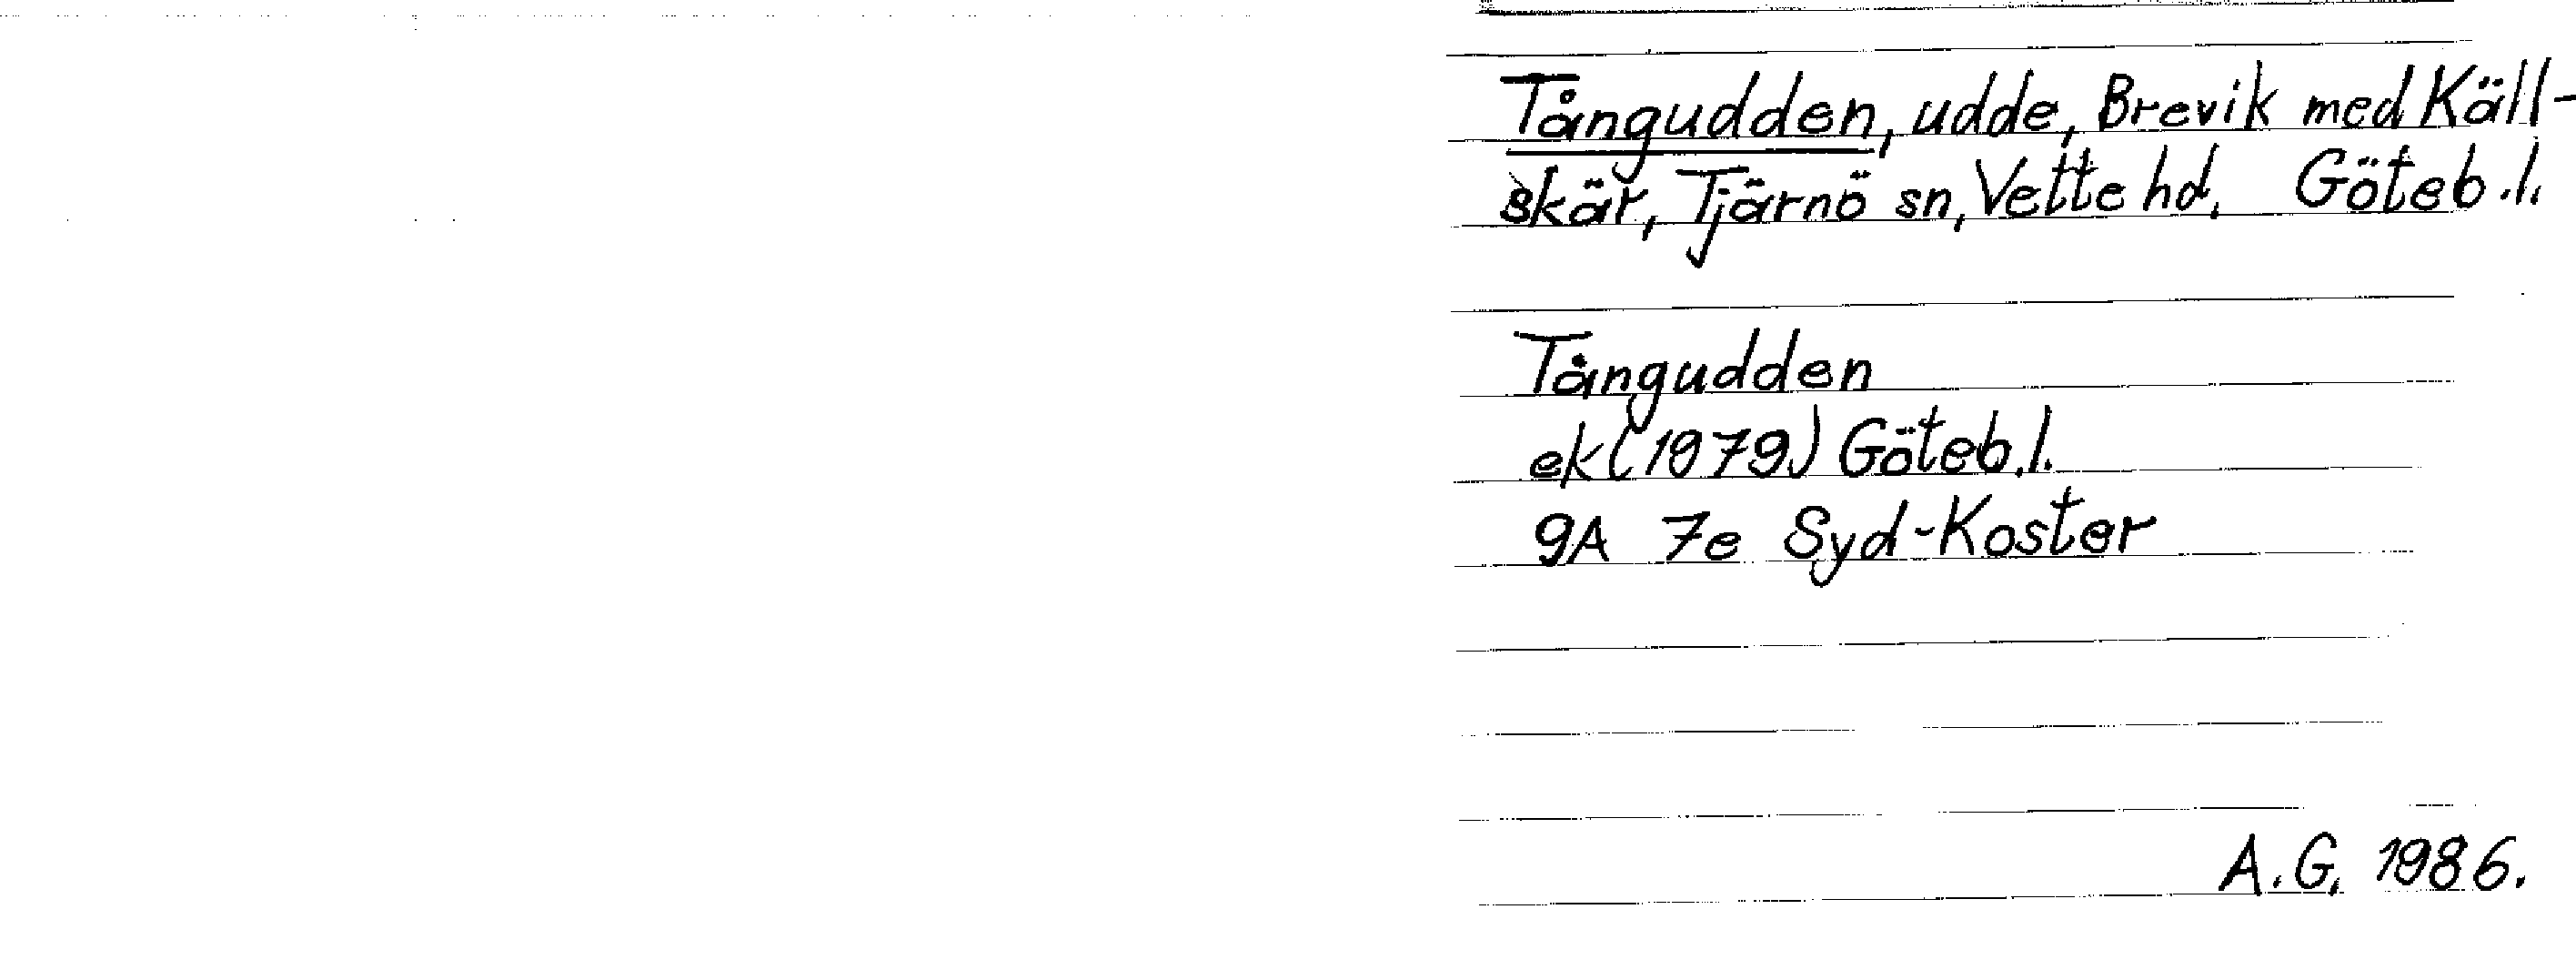 Tångudden, udde, Brevik med Käll-
skär, Tjärnö sn, Vette hd, Göteb.l.
Tångudden
ek (1979) Göteb.l.
9A 7e Syd-Koster
A.G. 1986.